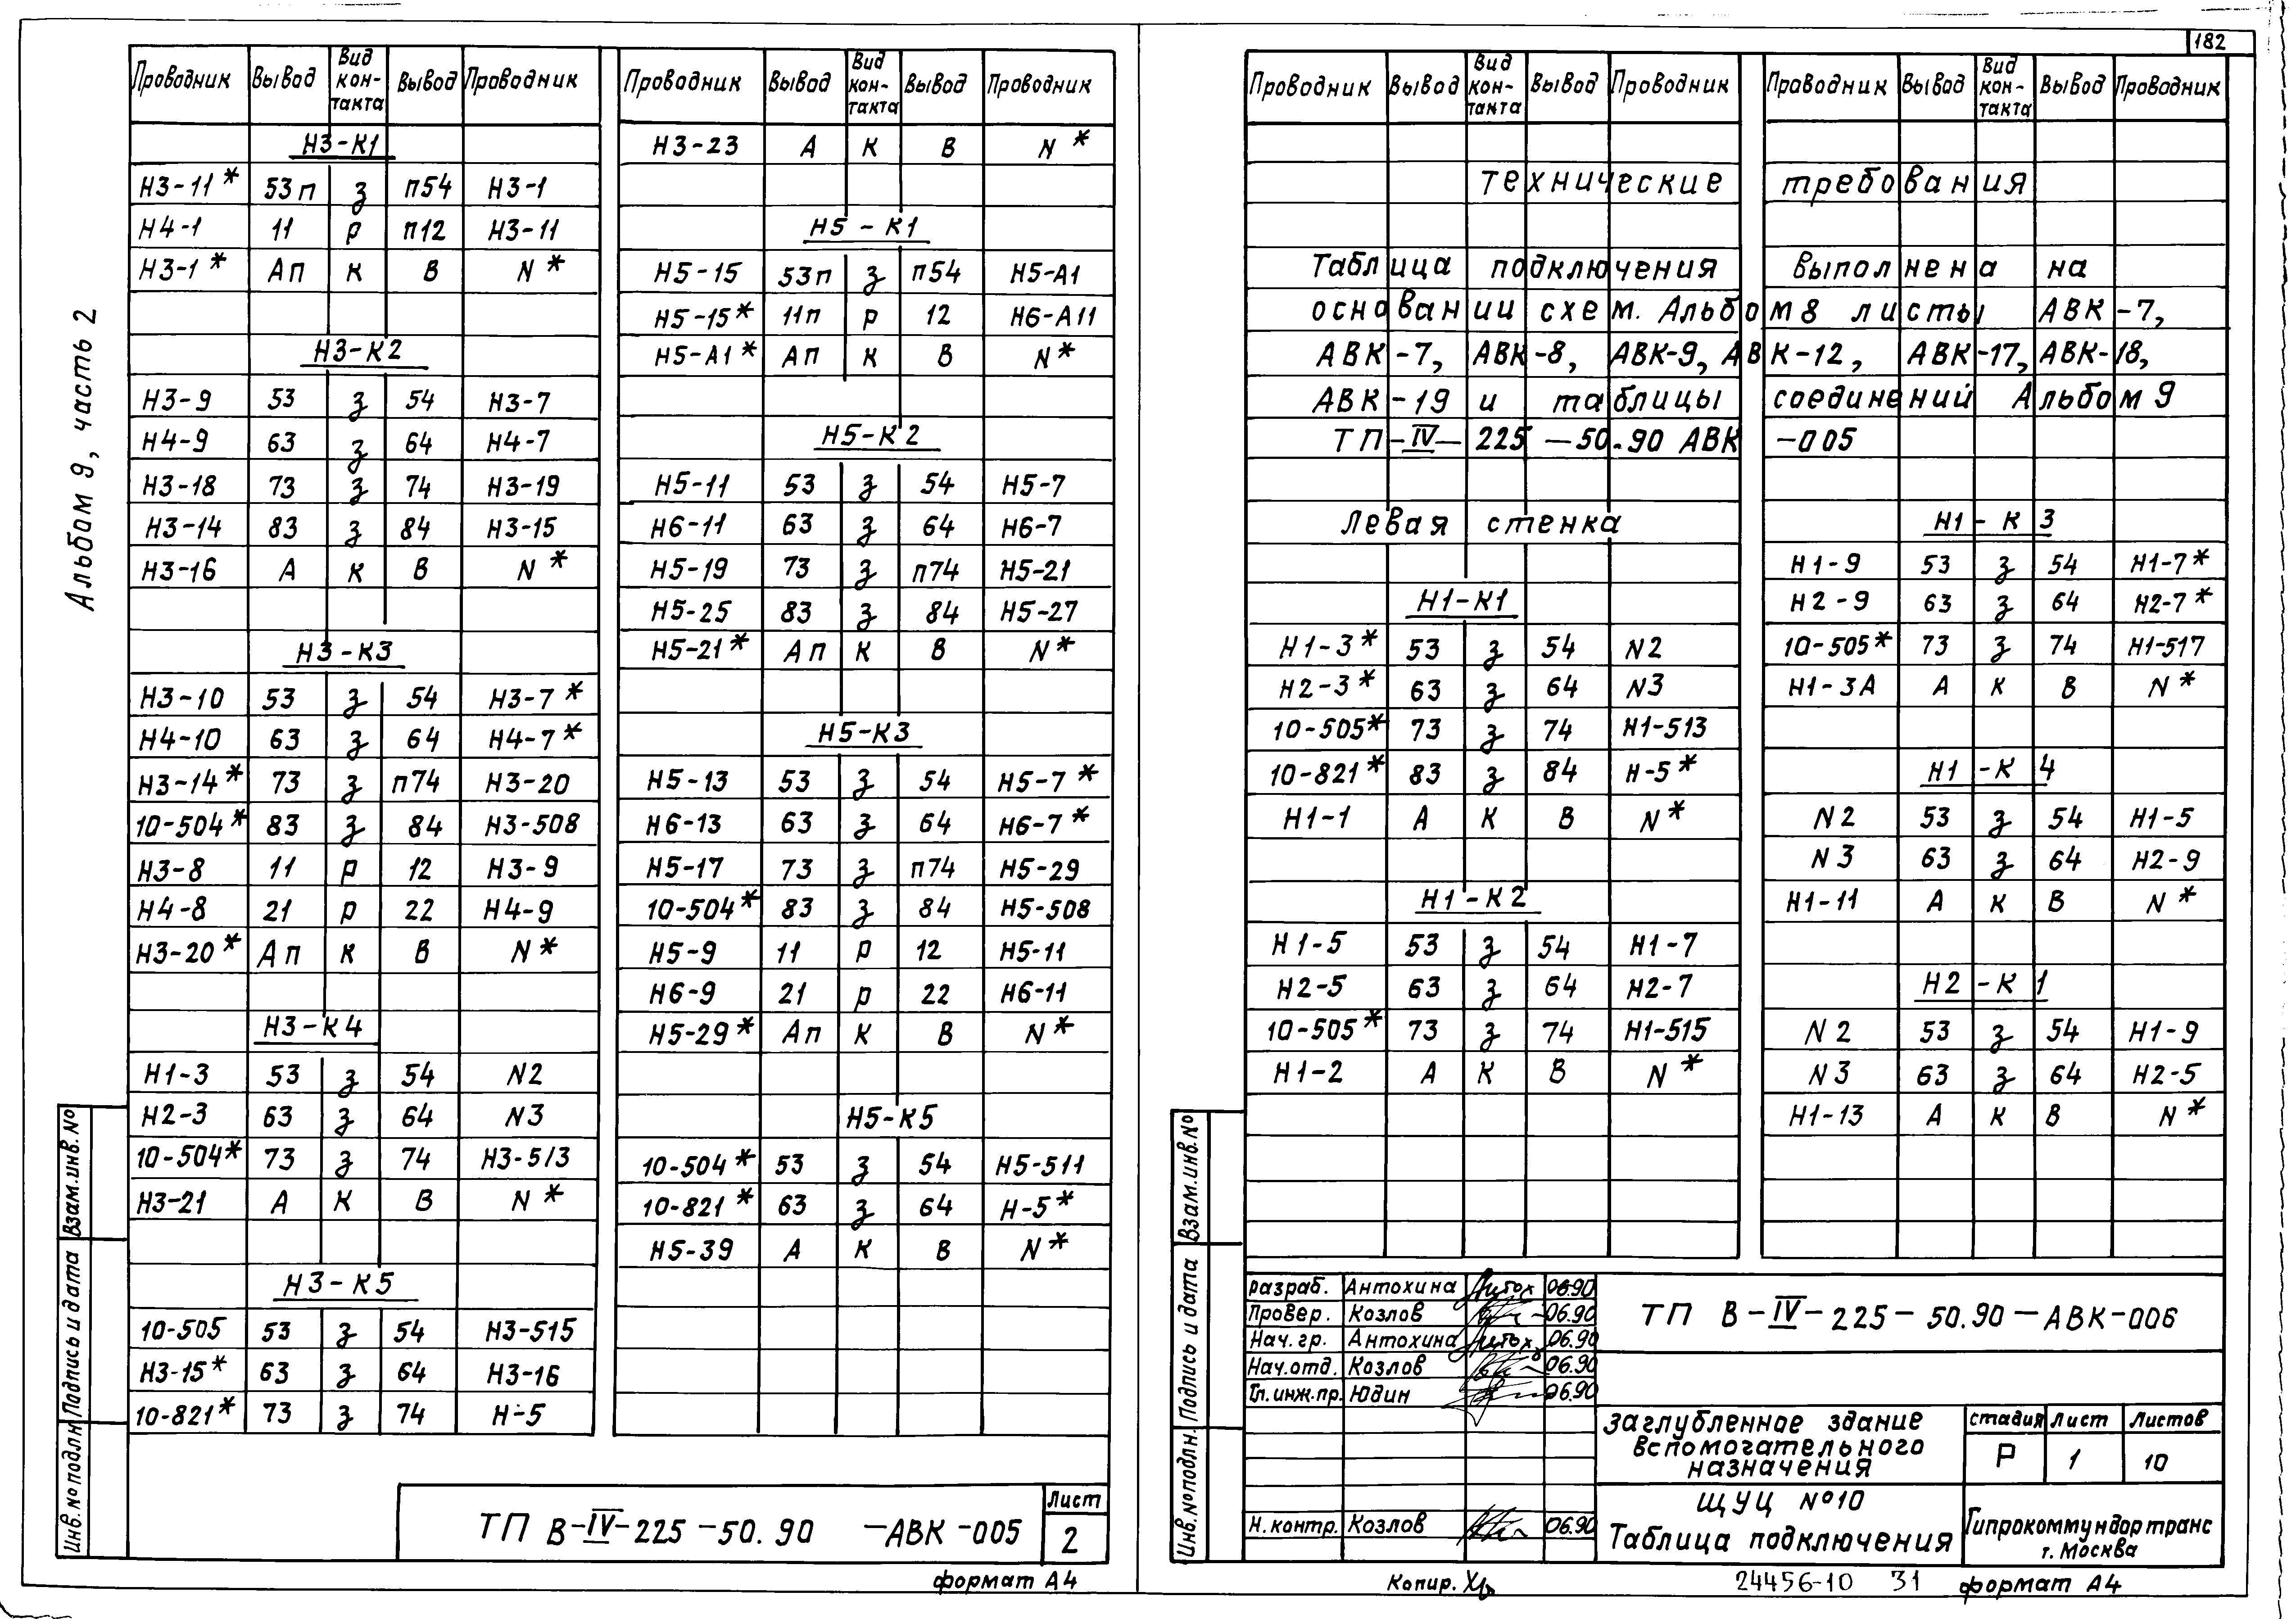 182
Альбом 9, часть 2
Проводник Вывод Вид кон-такта Вывод Проводник
Н3-К1
Н3-11* 53п з п54 Н3-1
Н4-1 11 р п12 Н3-11
Н3-1* Ап к В N*
Н3-К2
Н3-9 53 з 54 Н3-7
Н4-9 63 з 64 Н4-7
Н3-18 73 з 74 Н3-19
Н3-14 83 з 84 Н3-15
Н3-16 А к В N*
Н3-К3
Н3-10 53 з 54 Н3-7*
Н4-10 63 з 64 Н4-7*
Н3-14* 73 з п74 Н3-20
10-504* 83 з 84 Н3-508
Н3-8 11 р 12 Н3-9
Н4-8 21 р 22 Н4-9
Н3-20* Ап к В N*
Н3-К4
Н1-3 53 з 54 N2
Н2-3 63 з 64 N3
10-504* 73 з 74 Н3-513
Н3-21 А К В N*
Н3-К5
10-505 53 з 54 Н3-515
Н3-15* 63 з 64 Н3-16
10-821* 73 з 74 Н-5
Проводник Вывод Вид кон-такта Вывод Проводник
Н3-23 А К В N*
Н5-К1
Н5-15 53п з п54 Н5-А1
Н5-15* 11п р 12 Н6-А11
Н5-А1* Ап К В N*
Н5-К2
Н5-11 53 з 54 Н5-7
Н6-11 63 з 64 Н6-7
Н5-19 73 з п74 Н5-21
Н5-25 83 з 84 Н5-27
Н5-21* Ап К В N*
Н5-К3
Н5-13 53 з 54 Н5-7*
Н6-13 63 з 64 Н6-7*
Н5-17 73 з п74 Н5-29
10-504* 83 з 84 Н5-508
Н5-9 11 р 12 Н5-11
Н6-9 21 р 22 Н6-11
Н5-29* Ап К В N*
Н5-К5
10-504* 53 з 54 Н5-511
10-821* 63 з 64 Н-5*
Н5-39 А К В N*
Взам.инв.№
Подпись и дата
Инв.№подлн
ТП В-IV-225-50.90 -АВК-005
Лист
2
формат А4
Проводник Вывод Вид кон-такта Вывод Проводник
Проводник Вывод Вид кон-такта Вывод Проводник
Технические требования
Таблица подключения выполнена на
основании схем. Альбом 8 листы АВК-7,
АВК-7, АВК-8, АВК-9, АВК-12, АВК-17, АВК-18,
АВК-19 и таблицы соединений Альбом 9
ТП-IV-225-50.90 АВК-005
Левая стенка
Н1-К1
Н1-3* 53 з 54 N2
Н2-3* 63 з 64 N3
10-505* 73 з 74 Н1-513
10-821* 83 з 84 Н-5*
Н1-1 А К В N*
Н1-К2
Н1-5 53 з 54 Н1-7
Н2-5 63 з 64 Н2-7
10-505* 73 з 74 Н1-515
Н1-2 А К В N*
Н1-К3
Н1-9 53 з 54 Н1-7*
Н2-9 63 з 64 Н2-7*
10-505* 73 з 74 Н1-517
Н1-3А А К В N*
Н1-К4
N2 53 з 54 Н1-5
N3 63 з 64 Н2-9
Н1-11 А К В N*
Н2-К1
N2 53 з 54 Н1-9
N3 63 з 64 Н2-5
Н1-13 А К В N*
Взам.инв.№
Подпись и дата
Инв.№подлн.
Разраб. Антохина 06.90
Провер. Козлов 06.90
Нач.гр. Антохина 06.90
Нач.отд. Козлов 06.90
Гл.инж.пр. Юдин 06.90
Н.контр. Козлов 06.90
ТП В-IV-225-50.90-АВК-006
Заглубленное здание
вспомогательного
назначения
стадия Лист Листов
Р 1 10
ЩУЦ №10
Таблица подключения
Гипрокоммундортранс
г. Москва
Копир.
24456-10 31
формат А4